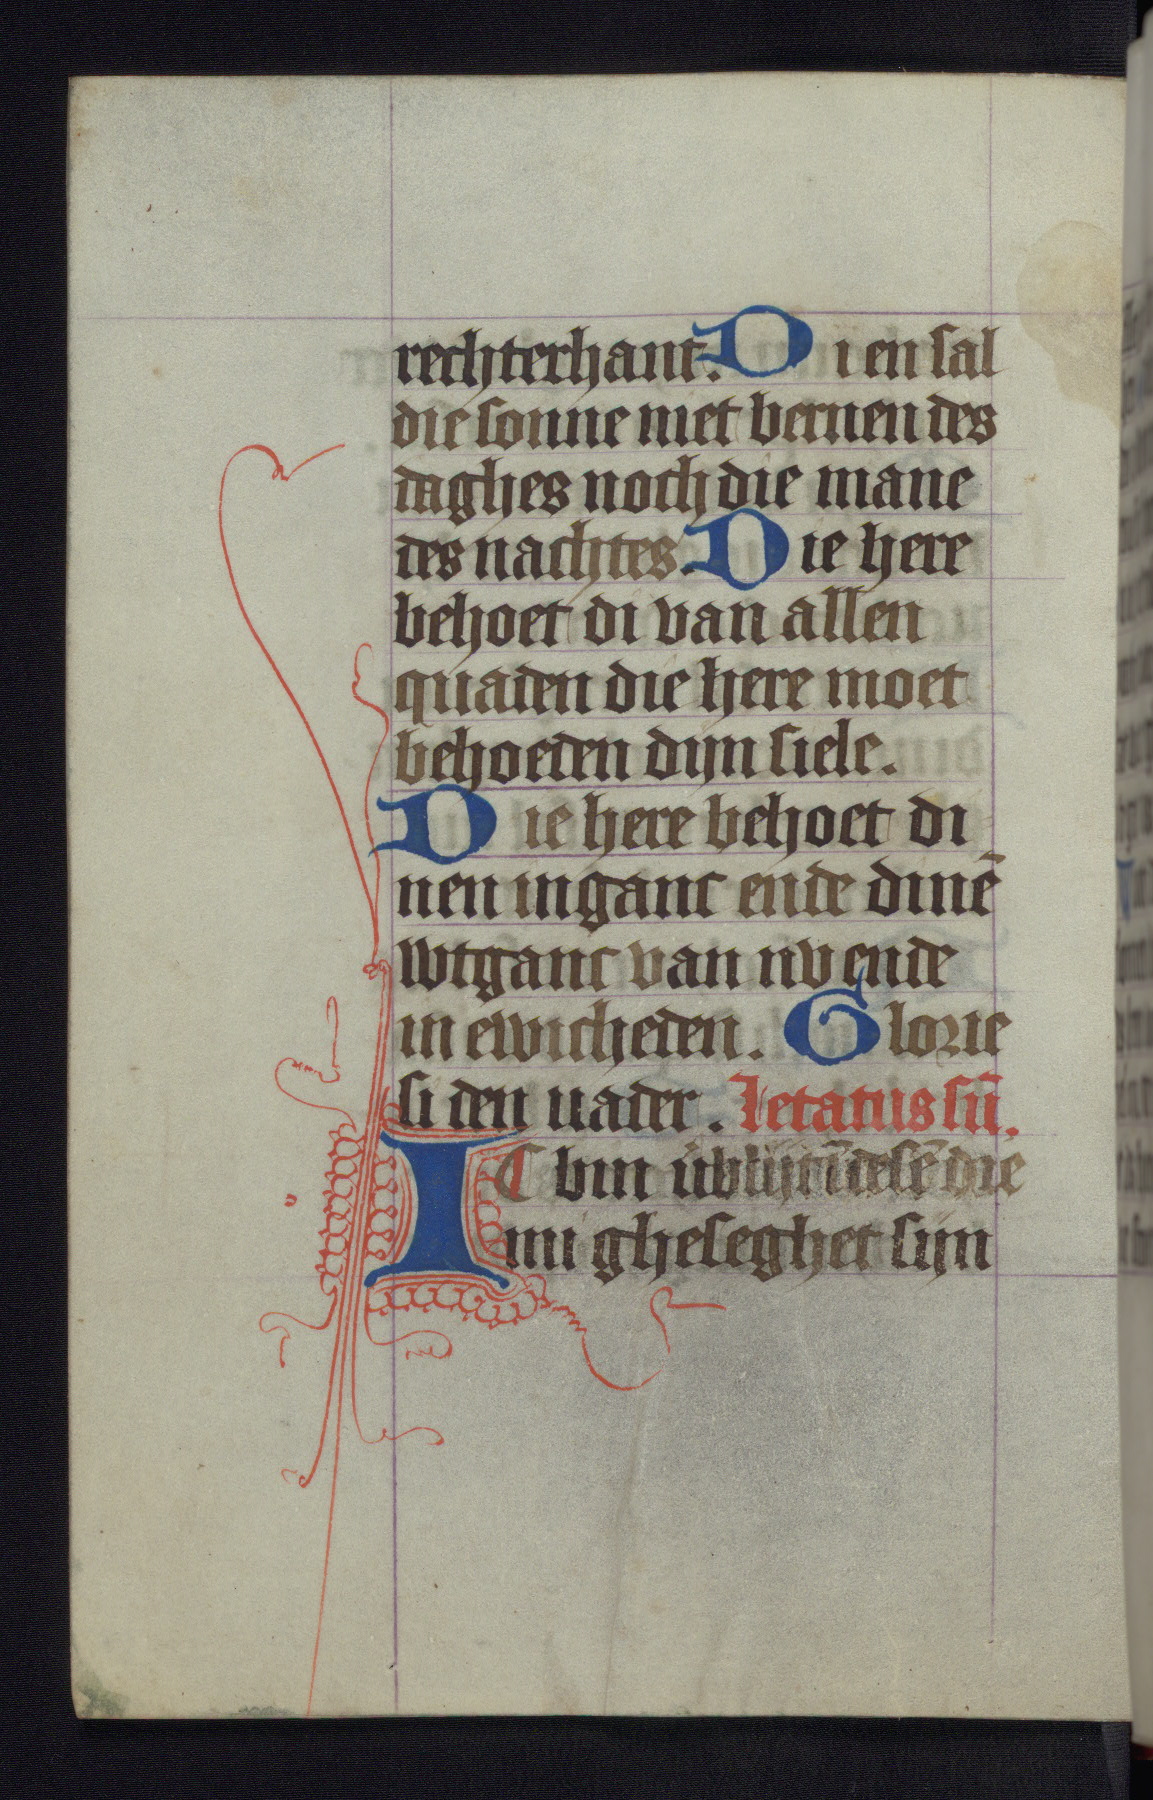 rechterhant. Di en sal
die sonne niet bernen des
daghes noch die mane
des nachtes. Die here
behoet di van allen
quaden die here moet
behoeden dijn siele.
Die here behoet di
nen inganc ende dinē
wtganc van nv ende
in ewicheden. Glorie
si den uader. Letatus sū.
IC bin vblijt in desē die
mi gheseghet sijn